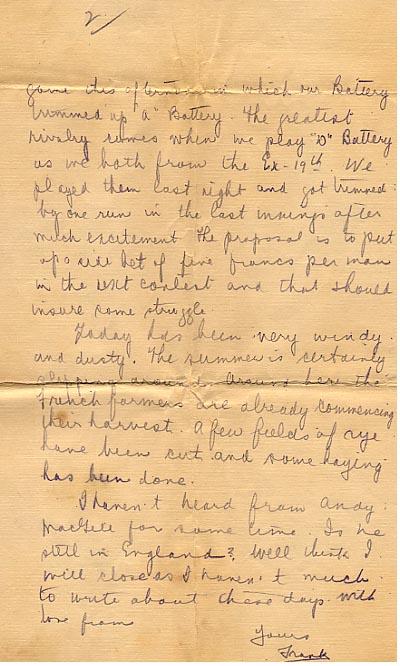 2/
game this afternoon in which our Battery
trimmed up "A" Battery. The greatest
rivalry comes when we play "D" Battery
as we both from the Ex-19th. We
played them last night and got trimmed
by one run in the last innings after
much excitement. The proposal is to put
up a side bet of five francs per man
in the next contest and that should
insure some struggle.
Today has been very windy
and dusty. The summer is certainly
slipping around. Around here the
French farmers are already commencing
their harvest. A few fields of rye
have been cut and some haying
has been done.
I haven't heard from Andy
for some time. Is he
still in England? Well think I
will close as I haven't much
to write about these days. With
love from
Yours
Frank